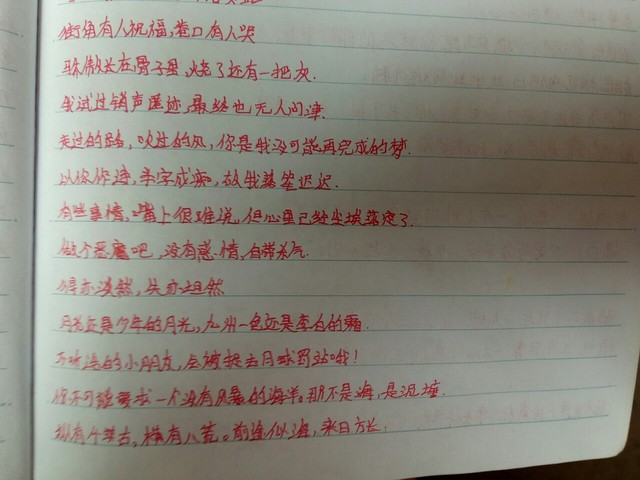 街角有人祝福,巷口有人哭
骄傲长在骨子里,烧了还有一把灰.
我试过销声匿迹,最终也无人问津.
走过的路,吹过的风,你是我没可能再完成的梦.
以你作诗,半字成痴,故我落笔迟迟.
有些事情,嘴上很难说,但心里已经尘埃落定了.
做个恶魔吧,没有感情,自带杀气.
得亦淡然,失亦坦然
月光还是少年的月光,九州一色还是李白的霜.
不听话的小朋友,会被捉去月球罚站哦!
你不可能要求一个没有风暴的海洋。那不是海,是泥塘.
纵有千古,横有八荒。前途似海,来日方长.